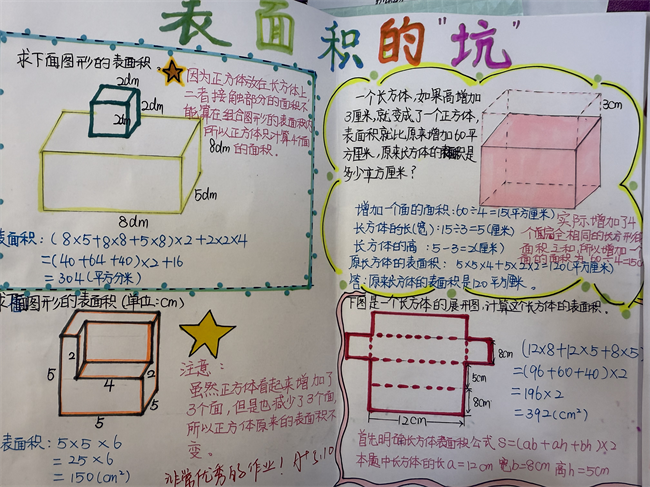 表面积的"坑"
求下面图形的表面积。
2dm
2dm
2dm
8dm
5dm
8dm
因为正方体放在长方体上
二者接触部分的面积不
能算在组合图形的表面积内
所以正方体只计算4个面
的面积.
表面积:(8×5+8×8+5×8)×2+2×2×4
=(40+64+40)×2+16
=304(平方分米)
一个长方体,如果高增加
3厘米,就变成了一个正方体,
表面积就比原来增加60平
方厘米,原来长方体的表面积是
多少平方厘米?
3cm
增加一个面的面积:60÷4=15(平方厘米)
长方体的长(宽):15÷3=5(厘米)
长方体的高:5-3=2(厘米)
原长方体的表面积:5×5×4+5×2×2=120(平方厘米)
答:原来长方体的表面积是120平方厘米。
实际增加了4
个面完全相同的长方形的
面积之和,所以增加一个
面的面积为60÷4=
求下面图形的表面积(单位:cm)
2
2
5
4
5
5
注意:
虽然正方体看起来增加了
3个面,但是也减少了3个面,
所以正方体原来的表面积不
变。
表面积:5×5×6
=25×6
=150(cm²)
非常优秀的作业!A+ 3.10
下图是一个长方体的展开图,计算这个长方体的表面积.
8cm
5cm
8cm
12cm
(12×8+12×5+8×5)
=(96+60+40)×2
=196×2
=392(cm²)
首先明确长方体表面积公式 S=(ab+ah+bh)×2
本题中长方体的长a=12cm 宽b=8cm 高h=5cm